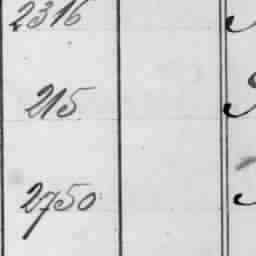 2316
215
2750